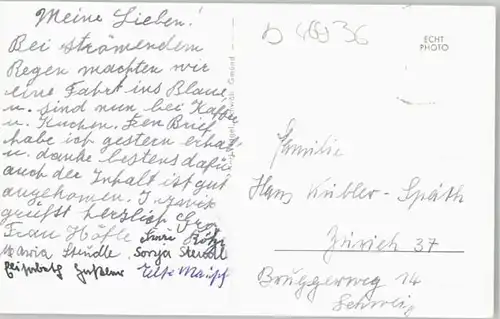 Meine Lieben!
Bei strömendem
Regen machten wir
eine Fahrt ins Blaue
u. sind nun bei Kaffee
u. Kuchen. Den Brief
habe ich gestern erhalt
u. danke bestens dafür
auch der Inhalt ist gut
angekommen. I
grüsst herzlich
Frau
Maria Steudle Sonja
Else
ECHT
PHOTO
Familie
Hans Kübler-Späth
Zürich 37
Bruggerweg 14
Schweiz